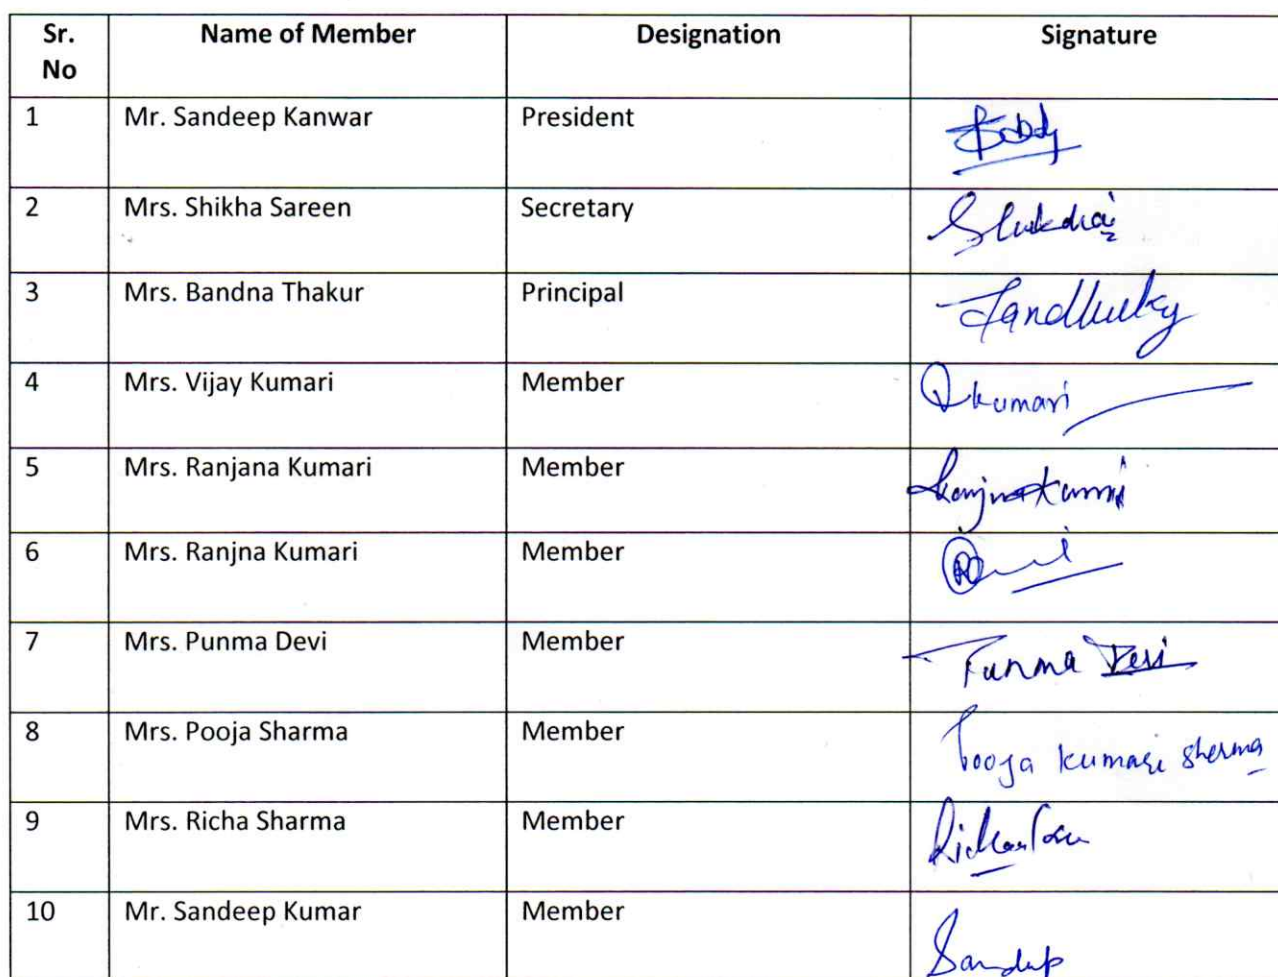 Sr. No Name of Member Designation Signature
1 Mr. Sandeep Kanwar President
2 Mrs. Shikha Sareen Secretary
3 Mrs. Bandna Thakur Principal
4 Mrs. Vijay Kumari Member kumari
5 Mrs. Ranjana Kumari Member
6 Mrs. Ranjna Kumari Member
7 Mrs. Punma Devi Member Punma Devi
8 Mrs. Pooja Sharma Member Pooja Kumari Sharma
9 Mrs. Richa Sharma Member
10 Mr. Sandeep Kumar Member